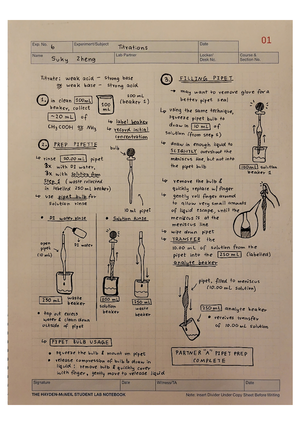 01
Exp. No. 6
Experiment/Subject Titrations
Date
Name Suky Zheng
Lab Partner
Locker/
Desk No.
Course &
Section No.
Titrate: weak acid - strong base
weak base - strong acid
1. in clean 100mL
beaker, collect
~20 mL of
CH3COOH or NH3
100 mL
(beaker 1)
↳ label beaker
↳ record initial
concentration
2. PREP PIPETTE
↳ rinse 10.00 mL pipet
3x with DI water,
3x with solution from
Step 1 (waste collected
in labelled 250 mL beaker)
↳ use pipet bulb for
solution rinse
bulb
10 mL pipet
DI water rinse
Solution Rinse
open
pipet
(10 mL)
DI water
250 mL
waste
beaker
100 mL
solution
beaker
250 mL
waste
beaker
↳ PIPET BULB USAGE
squeeze the bulb & mount on pipet
release compression of bulb to draw in
liquid : remove bulb & quickly cover
with finger, gently move to release liquid
3. FILLING PIPET
→ may want to remove glove for a
better pipet seal
↳ using the same technique,
squeeze pipet bulb to
draw in 10 mL of
solution (from step 1)
↳ draw in enough liquid to
SLIGHTLY overshoot the
meniscus line, but not into
the pipet bulb
↳ remove the bulb &
quickly replace w/ finger
gently roll finger around
to allow very small amounts
of liquid escape, until the
meniscus is at the
meniscus line
↳ wipe down pipet
↳ TRANSFER the
10.00 mL of solution from the
pipet into the 250 mL (labelled)
analyte beaker
pipet, filled to meniscus
(10.00 mL solution)
250 mL analyte beaker
receives transfer
of 10.00 mL solution
PARTNER "A" PIPET PREP
COMPLETE
Signature
Date
Witness/TA
Date
THE HAYDEN-McNEIL STUDENT LAB NOTEBOOK
Note: Insert Divider Under Copy Sheet Before Writing